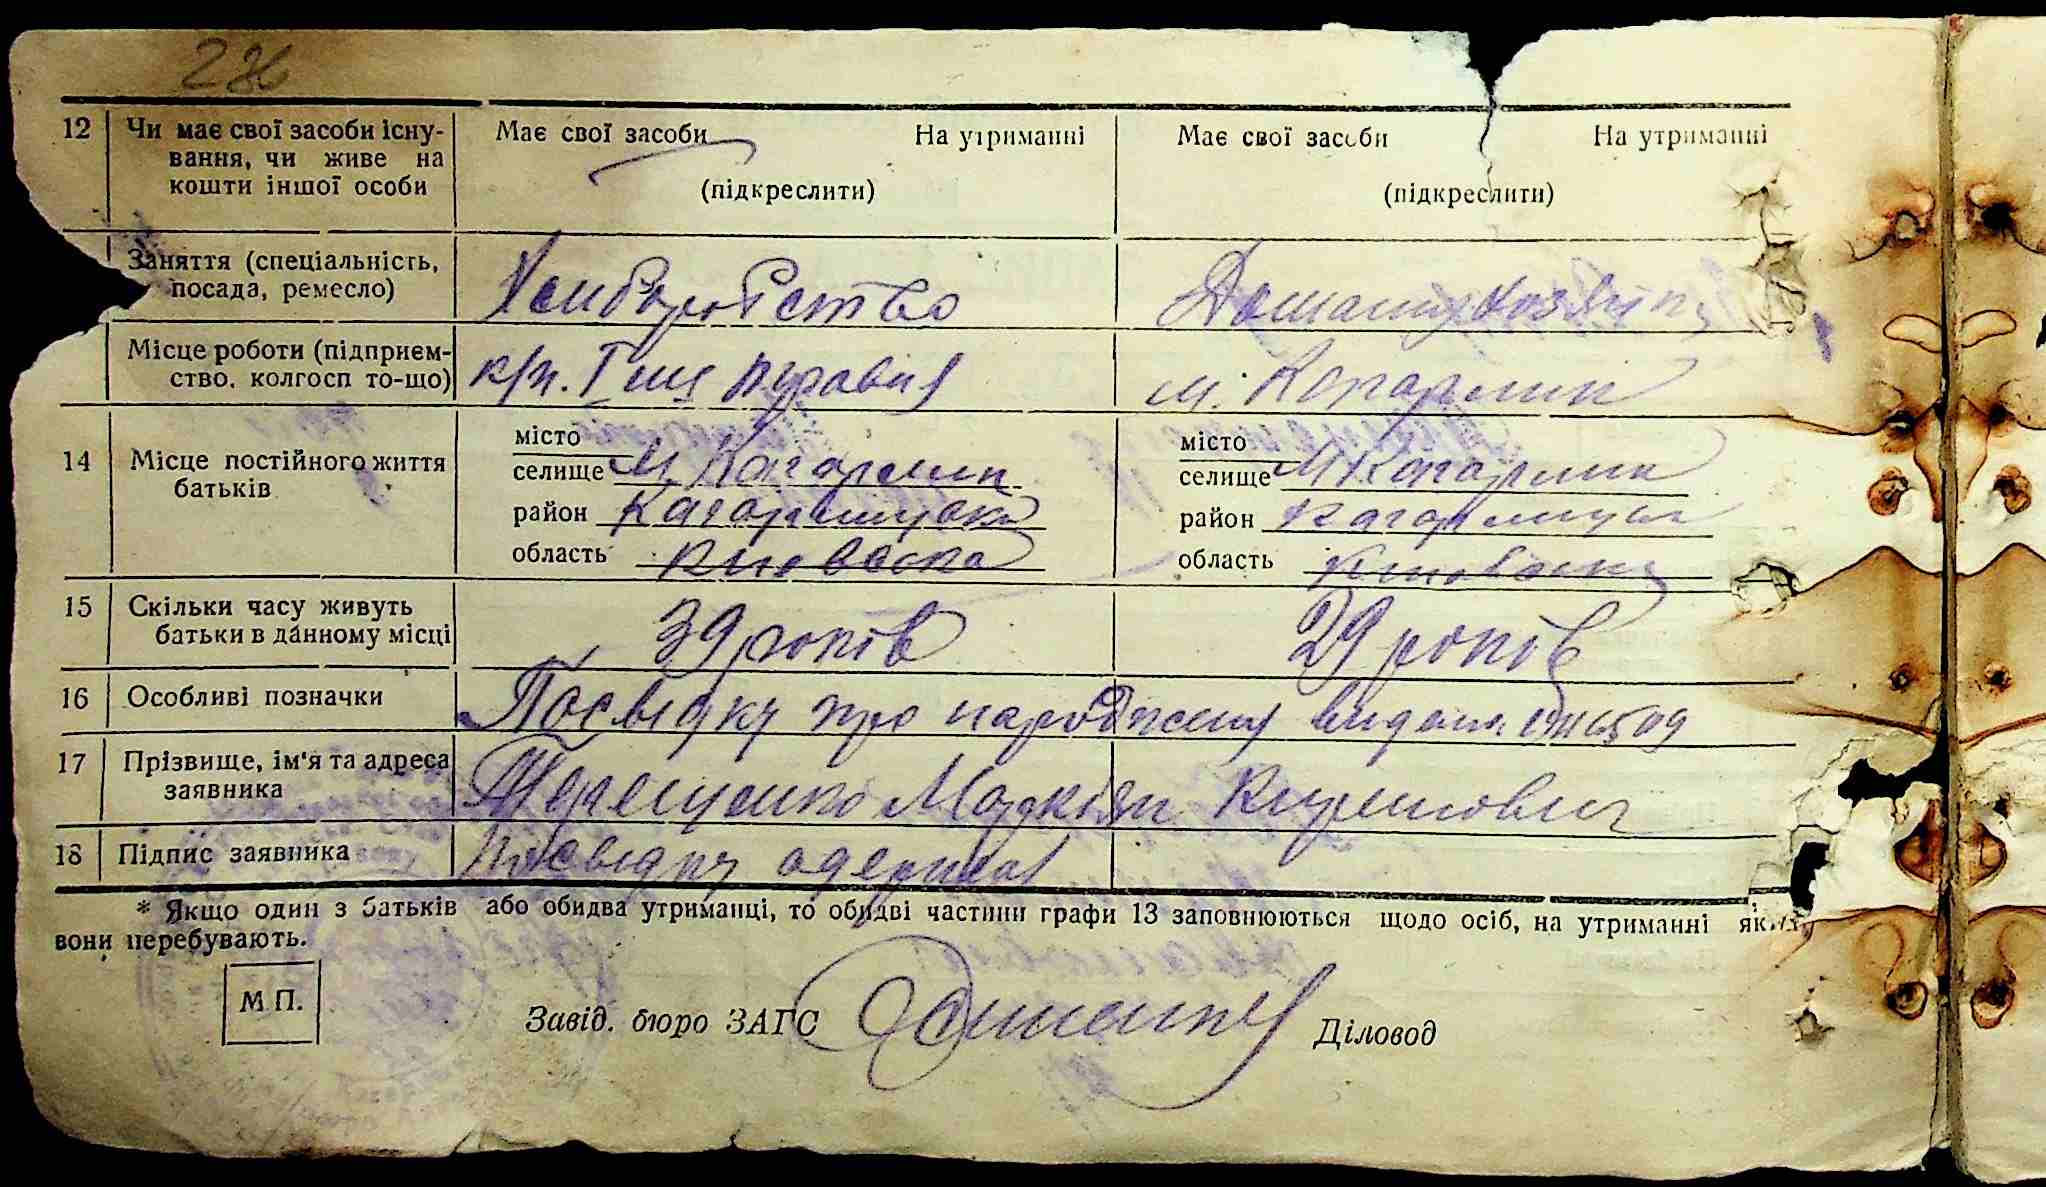 12 Чи має свої засоби існу-
вання, чи живе на
кошти іншої особи
Має свої засоби На утриманні
(підкреслити)
Має свої засоби На утриманні
(підкреслити)
Заняття (спеціальність,
посада, ремесло)
Хлиборобство
Домашня
Місце роботи (підприєм-
ство, колгосп то-що)
м. Кагарлик
14 Місце постійного життя
батьків
місто
селище м. Кагарлик
район Кагарлицьки
область Киевска
місто
селище м Кагарлик
район Кагарлицьк
область Киевска
15 Скільки часу живуть
батьки в данному місці
39 років
29 років
16 Особливі позначки
Посвідку про народженя видана
17 Прізвище, ім'я та адреса
заявника
Терещенко Кирилович
18 Підпис заявника
Посвідку одержал
* Якщо один з батьків або обидва утриманці, то обидві частини графи 13 заповнюються щодо осіб, на утриманні яких
вони перебувають.
М.П.
Завід. бюро ЗАГС
Діловод